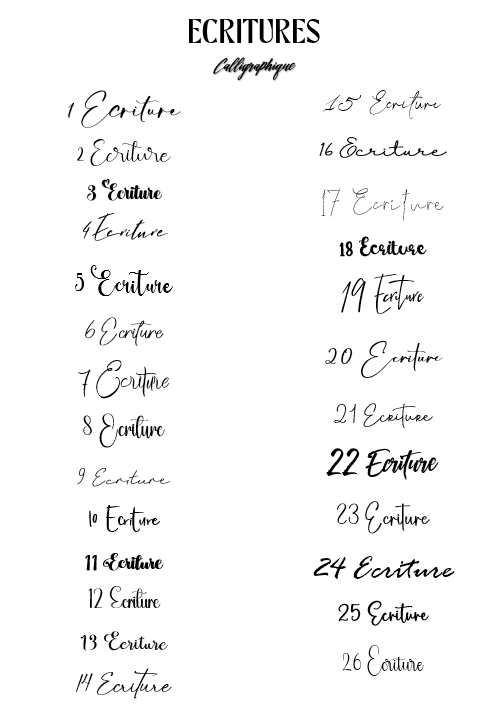 ECRITURES
Calligraphique
1 Ecriture
2 Ecriture
3 Ecriture
4 Ecriture
5 Ecriture
6 Ecriture
7 Ecriture
8 Ecriture
9 Ecriture
10 Ecriture
11 Ecriture
12 Ecriture
13 Ecriture
14 Ecriture
15 Ecriture
16 Ecriture
17 Ecriture
18 Ecriture
19 Ecriture
20 Ecriture
21 Ecriture
22 Ecriture
23 Ecriture
24 Ecriture
25 Ecriture
26 Ecriture